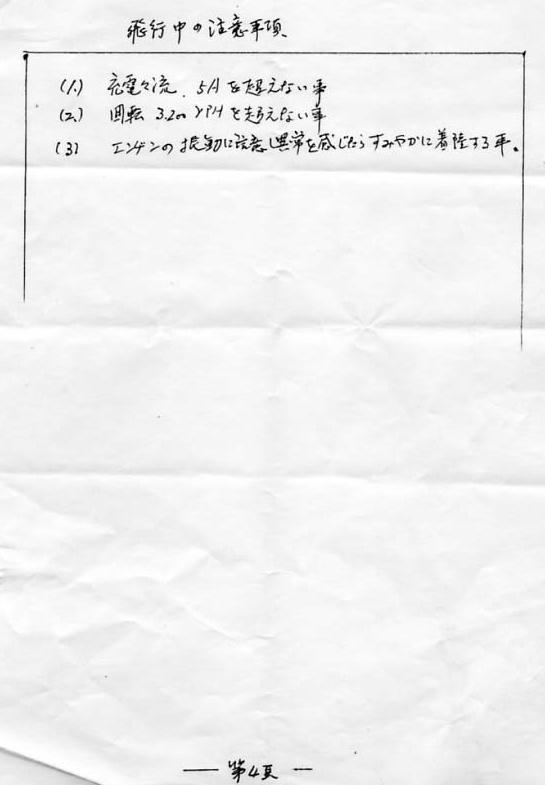 飛行中の注意事項
(1.) 充電々流. 5Aを超えない事
(2.) 回転 3.200 rPHを超えない事
(3) エンヂンの振動に注意し異常を感じたらすみやかに着陸する事。
── 第4頁 ─